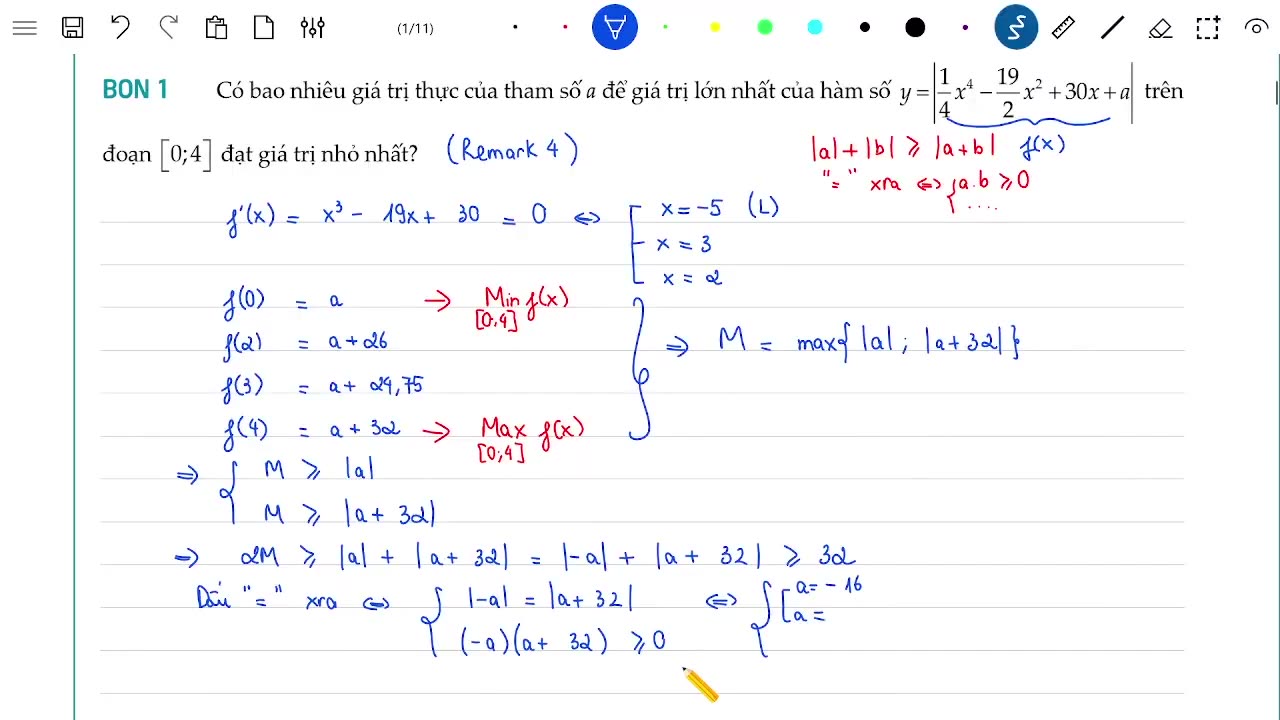 (1/11)
BON 1 Có bao nhiêu giá trị thực của tham số a để giá trị lớn nhất của hàm số y = |1/4 x⁴ − 19/2 x² + 30x + a| trên
đoạn [0;4] đạt giá trị nhỏ nhất? (Remark 4)
|a| + |b| ⩾ |a+b| f(x)
"=" xra ⇔ { a.b ⩾ 0
....
f'(x) = x³ − 19x + 30 = 0 ⇔ [ x = −5 (L)
x = 3
x = 2
f(0) = a → Min f(x)
[0;4]
f(2) = a + 26
⇒ M = max{ |a| ; |a+32| }
f(3) = a + 24,75
f(4) = a + 32 → Max f(x)
[0;4]
⇒ { M ⩾ |a|
M ⩾ |a + 32|
⇒ 2M ⩾ |a| + |a + 32| = |−a| + |a + 32| ⩾ 32
Dấu "=" xra ⇔ { |−a| = |a + 32| ⇔ { [ a = −16
a =
(−a)(a + 32) ⩾ 0